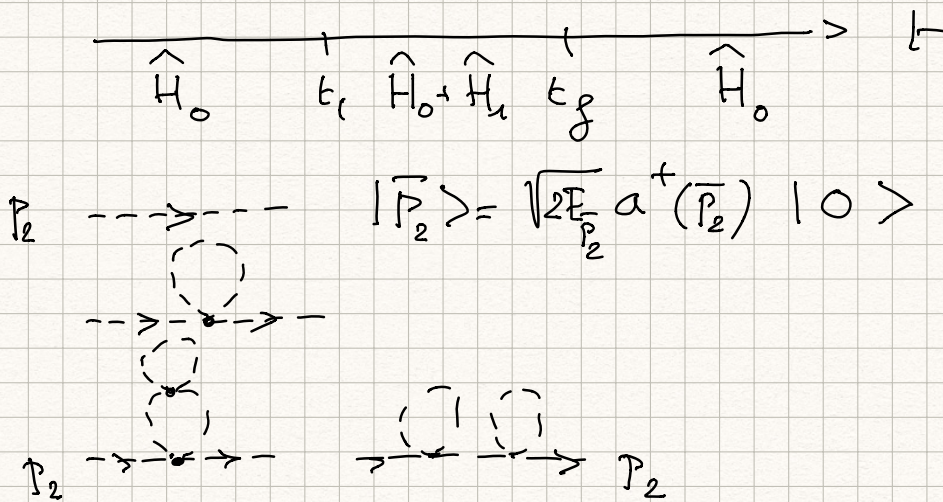 Ĥ₀ t_i Ĥ₀ + Ĥ₁ t_f Ĥ₀
p₂ |p̄₂> = √2E_p̄₂ a⁺(p̄₂) |0>
p₂ p₂